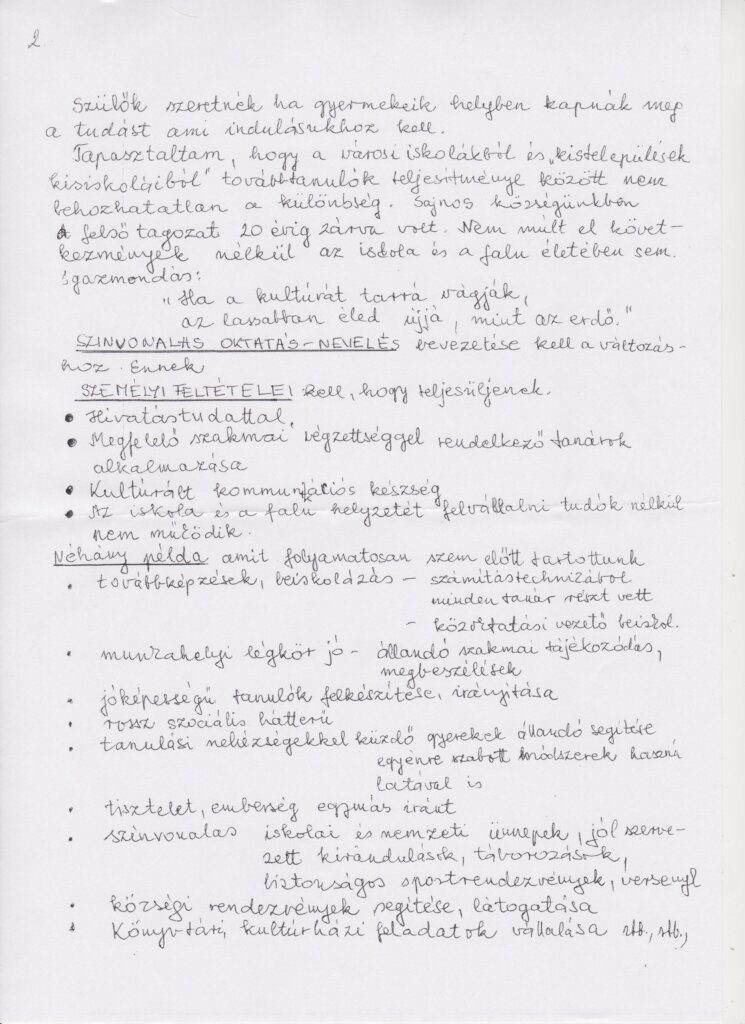 2.
Szülők szeretnék ha gyermekeik helyben kapnák meg
a tudást ami indulásukhoz kell.
Tapasztaltam, hogy a városi iskolákból és „kistelepülések
kisiskoláiból" továbbtanulók teljesítménye között nem
behozhatatlan a különbség. Sajnos községünkben
a felső tagozat 20 évig zárva volt. Nem múlt el követ-
kezmények nélkül az iskola és a falu életében sem.
Igazmondás:
„Ha a kultúrát tarrá vágják,
az lassabban éled újjá, mint az erdő."
SZINVONALAS OKTATÁS-NEVELÉS bevezetése kell a változás-
hoz. Ennek
SZEMÉLYI FELTÉTELEI kell, hogy teljesüljenek.
• Hivatástudattal,
• Megfelelő szakmai végzettséggel rendelkező tanárok
alkalmazása
• Kultúrált kommunikációs készség
• Az iskola és a falu helyzetét felvállalni tudók nélkül
nem működik.
Néhány példa amit folyamatosan szem előtt tartottunk
• továbbképzések, beiskolázás – számítástechnikából
minden tanár részt vett
– közoktatási vezető beiskol.
• munkahelyi légkör jó – állandó szakmai tájékozódás,
megbeszélések
• jóképességű tanulók felkészítése, irányítása
• rossz szociális hátterű
• tanulási nehézségekkel küzdő gyerekek állandó segítése
egyénre szabott módszerek hasz
latával is
• tisztelet, emberség egymás iránt
• színvonalas iskolai és nemzeti ünnepek, jól szerve-
zett kirándulások, táborozások,
biztonságos sportrendezvények, versenyl
• községi rendezvények segítése, látogatása
• Könyvtári, kultúrházi feladatok vállalása stb., stb.,